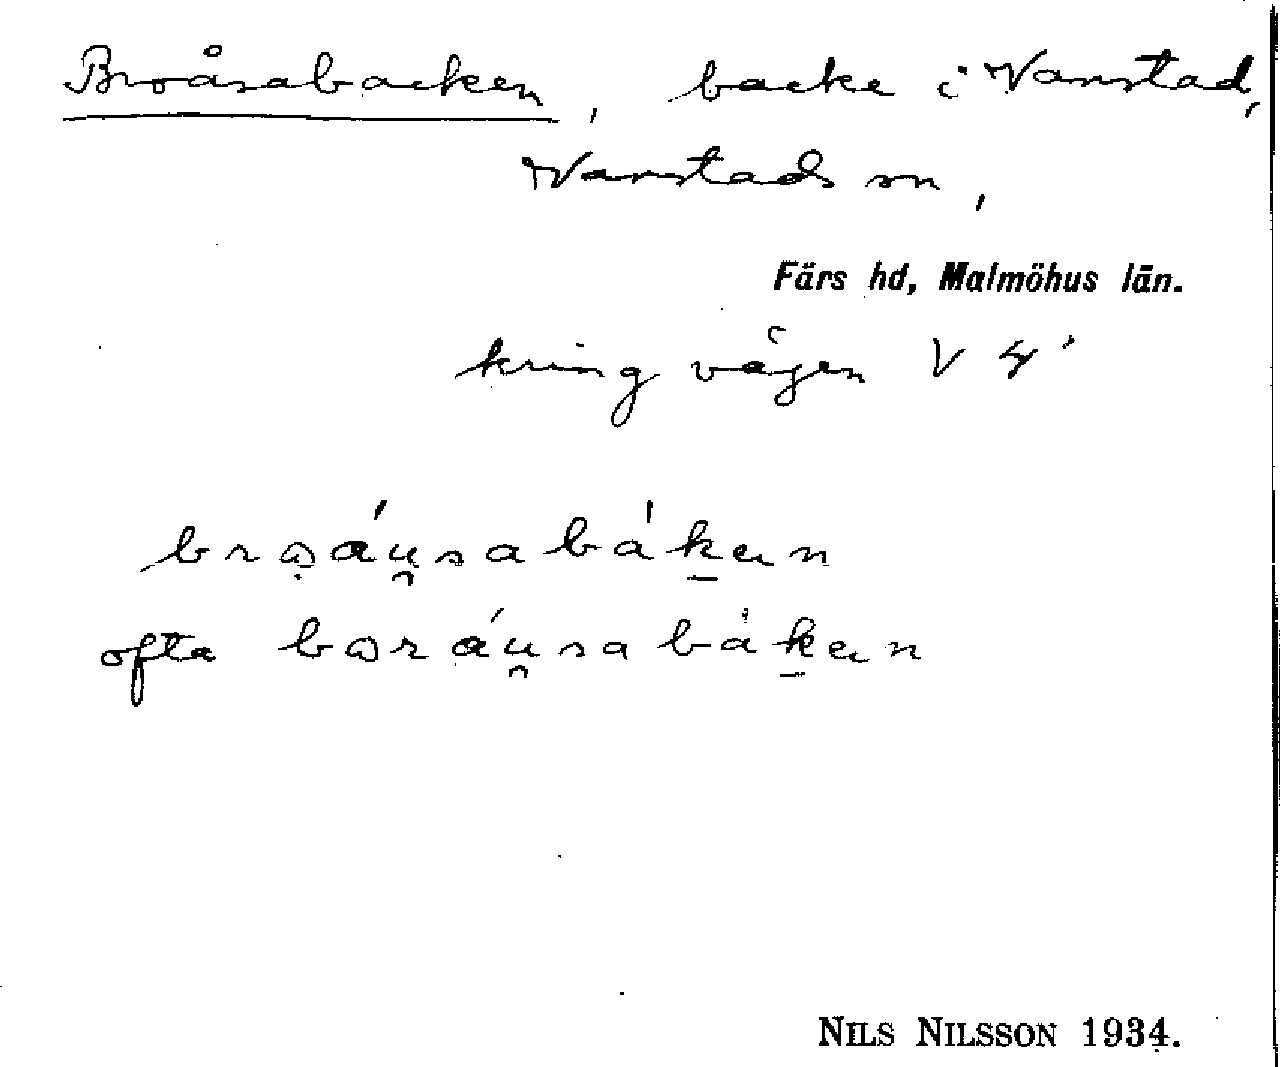 Broåsabacken, backe i Vanstad,
Vanstads sn,
Färs hd, Malmöhus län.
kring vägen V 4'
brω̣áu̯sabák̠ən
ofta bωráu̯sabák̠ən
NILS NILSSON 1934.